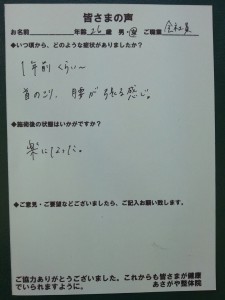 皆さまの声
お名前 年齢 26 男・女 ご職業 会社員
◆いつ頃から、どのような症状がありましたか?
1年前くらい〜
首のこり、腰が張る感じ。
◆施術後の状態はいかがですか?
楽になった。
◆ご意見・ご要望などございましたら、ご記入お願い致します。
ご協力ありがとうございました。これからも皆さまが健康
でいられますように。 あさがや整体院